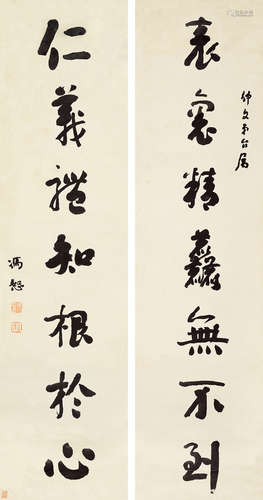 仲文弟台屬
表裏精麤無不到
仁義禮知根於心
馮煦